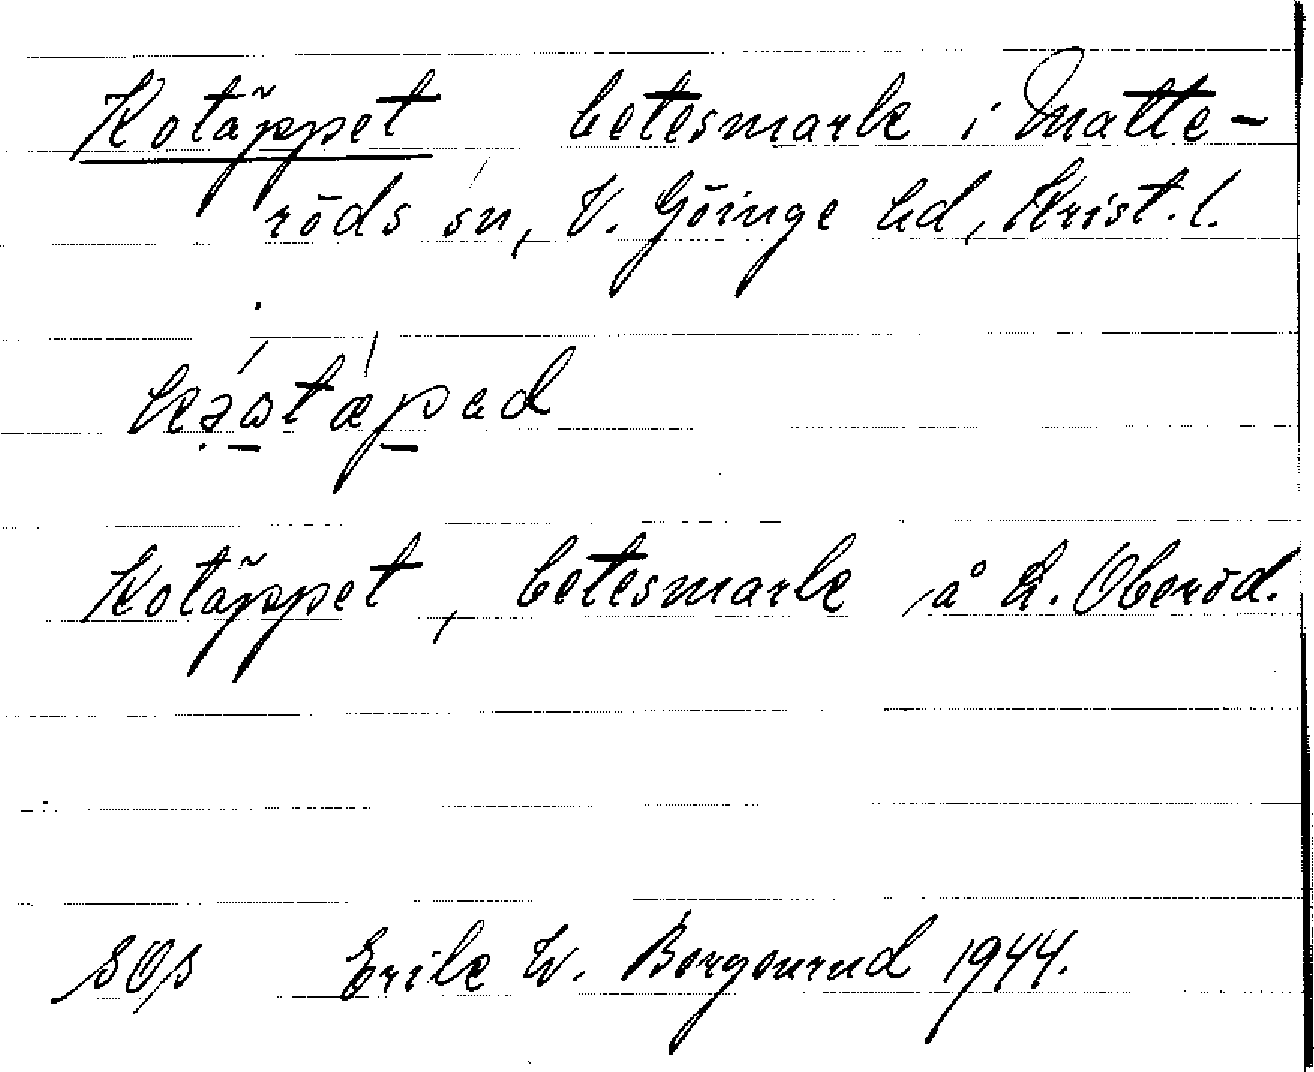 Kotäppet betesmark i Matte-
röds sn, V. Göinge hd, Krist. l.
Kotäppet, betesmark å L. Oberöd.
SOs Erik W. Borgenrud 1944.